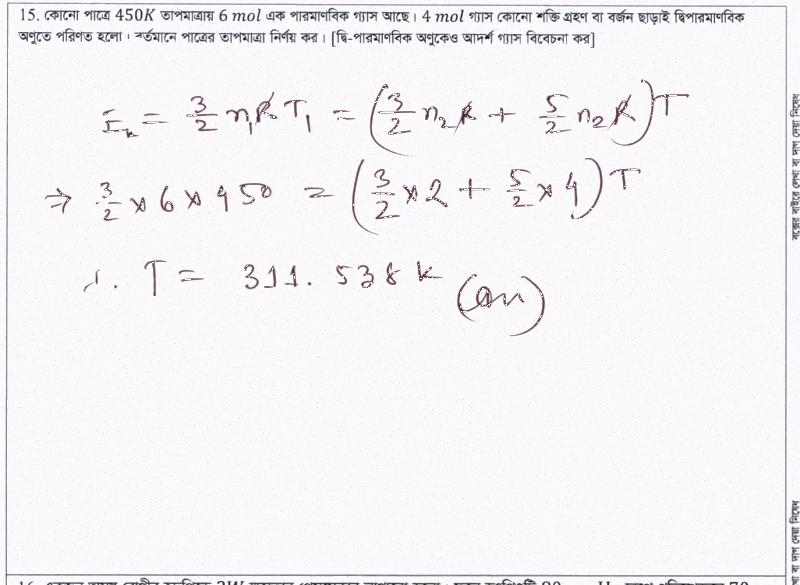 15. কোনো পাত্রে 450K তাপমাত্রায় 6 mol এক পারমাণবিক গ্যাস আছে। 4 mol গ্যাস কোনো শক্তি গ্রহণ বা বর্জন ছাড়াই দ্বিপারমাণবিক
অণুতে পরিণত হলো। বর্তমানে পাত্রের তাপমাত্রা নির্ণয় কর। [দ্বি-পারমাণবিক অণুকেও আদর্শ গ্যাস বিবেচনা কর]
E_k = 3/2 n₁RT₁ = (3/2 n₂R + 5/2 n₂R)T
⇒ 3/2 × 6 × 450 = (3/2 × 2 + 5/2 × 4) T
∴ T = 311.538 K (Ans)
বক্সের বাইরে লেখা বা দাগ দেয়া নিষেধ
বা দাগ দেয়া নিষেধ